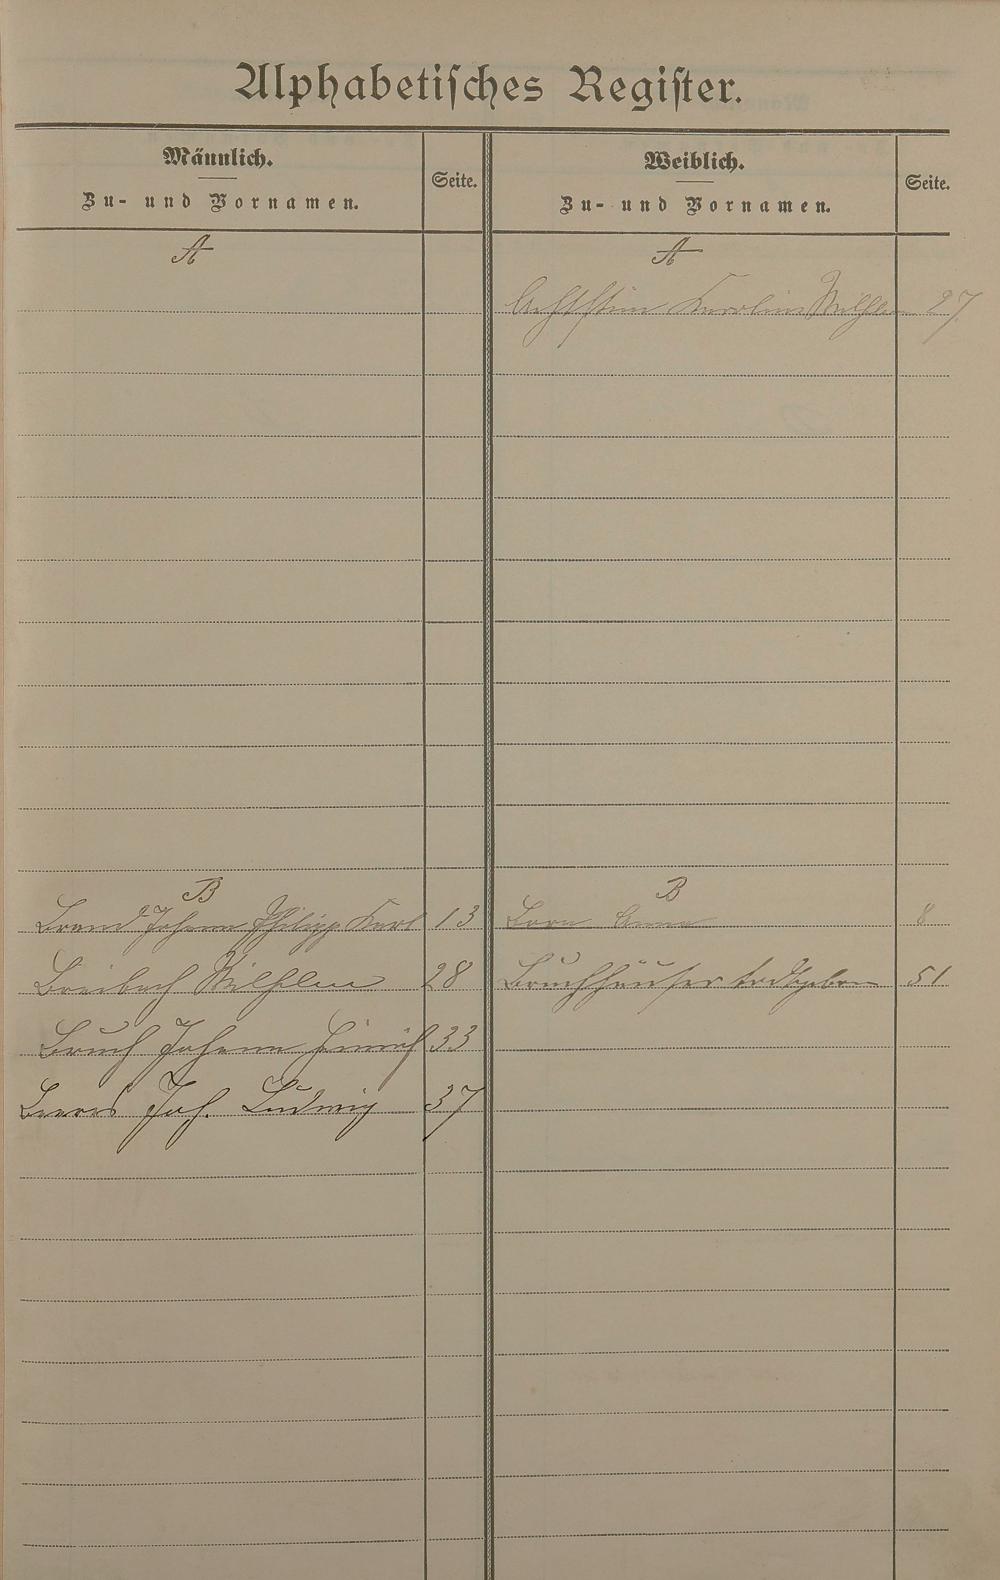 Alphabetiſches Regiſter.
Männlich.
Zu- und Vornamen.
Seite.
Weiblich.
Zu- und Vornamen.
Seite.
A
A
Karoline Wilhelm 27
B
Brand Johann Philipp Karl 13
Breibach Wilhelm 28
Bruch Johann Heinrich 33
Joh. Ludwig 37
B
Born Anna 8
Bruchhäuser todtgeboren 51